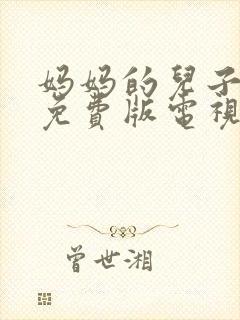 妈妈的兒子
免費版電視
曾世湘